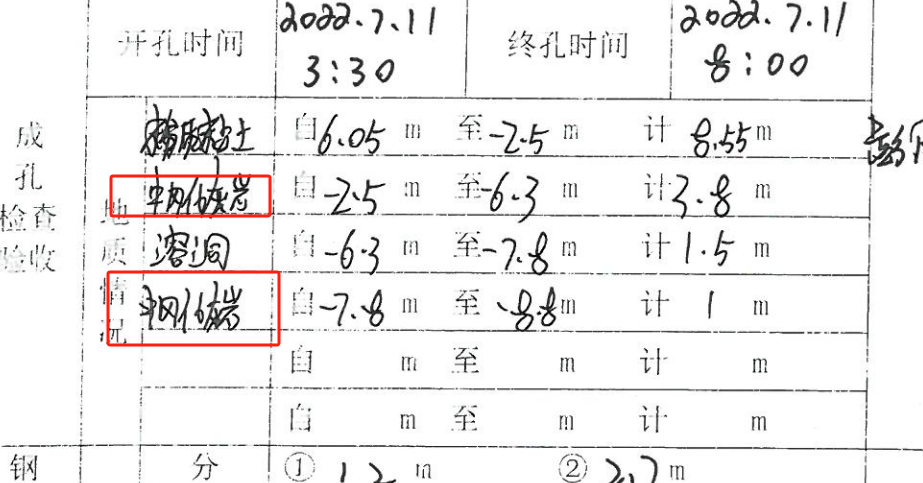 开孔时间 2022.7.11 3:30 终孔时间 2022.7.11 8:00
成孔检查验收 地质情况
自 6.05 m 至 -2.5 m 计 8.55 m
中风化灰岩 自 -2.5 m 至 -6.3 m 计 3.8 m
溶洞 自 -6.3 m 至 -7.8 m 计 1.5 m
风化灰岩 自 -7.8 m 至 -8.8 m 计 1 m
自 m 至 m 计 m
自 m 至 m 计 m
钢 分 ① 1.2 m ② 2.7 m